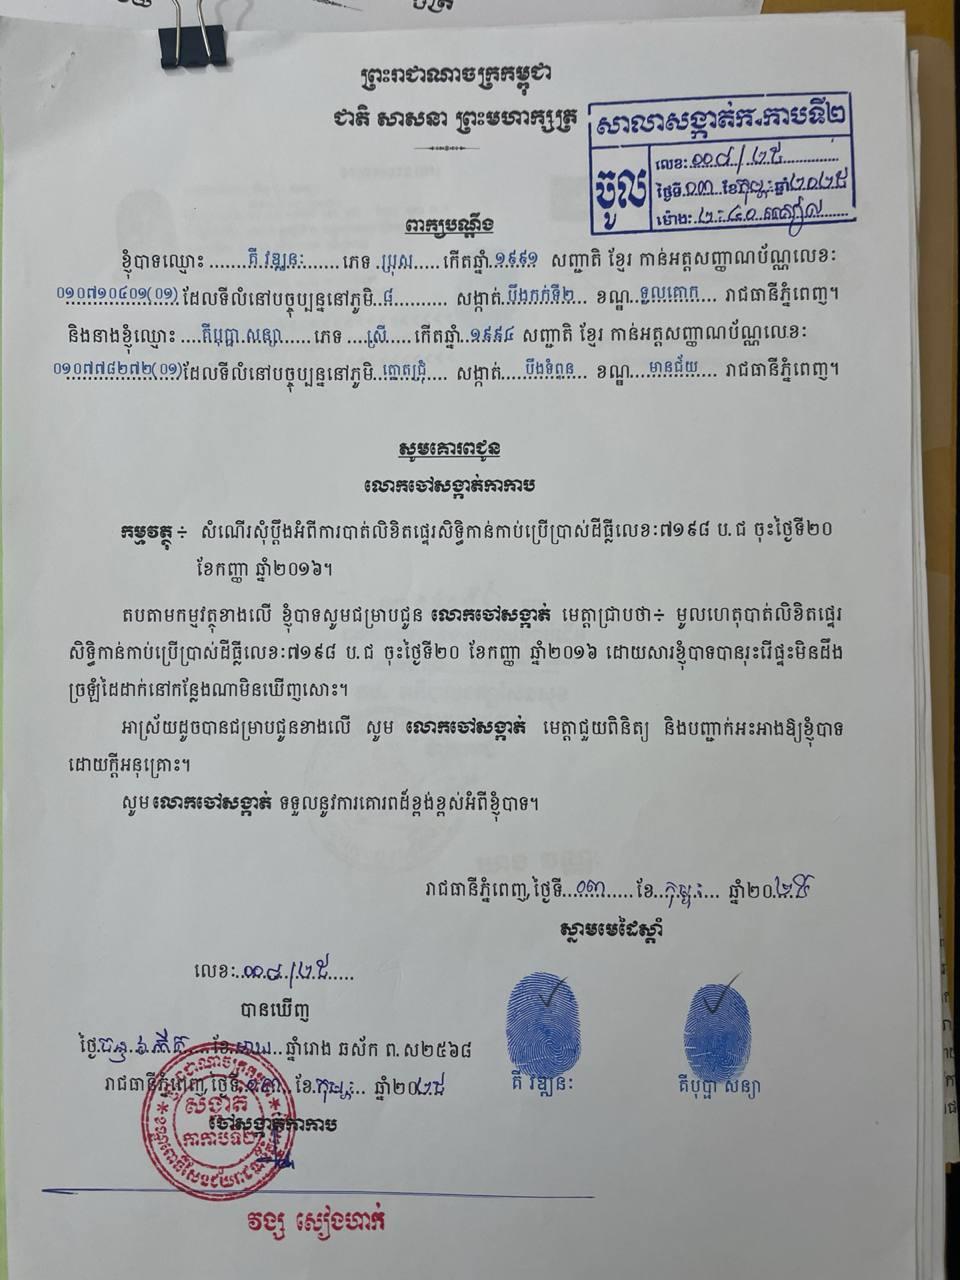 ព្រះរាជាណាចក្រកម្ពុជា
ជាតិ សាសនា ព្រះមហាក្សត្រ
សាលាសង្កាត់ក.កាបទី២
ចូល
លេខ:..០០៨/២៥
ថ្ងៃទី.០៣..ខែកុម្ភៈ.ឆ្នាំ២០២៥
ម៉ោង:.២:៤០.រសៀល
ពាក្យបណ្តឹង
ខ្ញុំបាទឈ្មោះ .......គី វឌ្ឍនៈ......ភេទ .ប្រុស.... កើតឆ្នាំ.១៩៩១ សញ្ជាតិ ខ្មែរ កាន់អត្តសញ្ញាណប័ណ្ណលេខៈ
០១០៧១០៤០១(០១) ដែលទីលំនៅបច្ចុប្បន្ននៅភូមិ..៨.......... សង្កាត់.បឹងកក់ទី២ ខណ្ឌ.ទួលគោក... រាជធានីភ្នំពេញ។
និងនាងខ្ញុំឈ្មោះ ....គីបុប្ផា.សន្យា..... ភេទ ...ស្រី..... កើតឆ្នាំ.១៩៩៤ សញ្ជាតិ ខ្មែរ កាន់អត្តសញ្ញាណប័ណ្ណលេខៈ
០១០៧៧៨២៧២(០១)ដែលទីលំនៅបច្ចុប្បន្ននៅភូមិ..ត្នោតជ្រុំ.... សង្កាត់ ...បឹងទំពុន... ខណ្ឌ....មានជ័យ..... រាជធានីភ្នំពេញ។
សូមគោរពជូន
លោកចៅសង្កាត់កាកាប
កម្មវត្ថុ ÷ សំណើរសុំប្តឹងអំពីការបាត់លិខិតផ្ទេរសិទ្ធិកាន់កាប់ប្រើប្រាស់ដីធ្លីលេខៈ៧១៩៨ ប.ជ ចុះថ្ងៃទី២០
ខែកញ្ញា ឆ្នាំ២០១៦។
តបតាមកម្មវត្ថុខាងលើ ខ្ញុំបាទសូមជម្រាបជូន លោកចៅសង្កាត់ មេត្តាជ្រាបថា÷ មូលហេតុបាត់លិខិតផ្ទេរ
សិទ្ធិកាន់កាប់ប្រើប្រាស់ដីធ្លីលេខៈ៧១៩៨ ប.ជ ចុះថ្ងៃទី២០ ខែកញ្ញា ឆ្នាំ២០១៦ ដោយសារខ្ញុំបាទបានរុះរើផ្ទះមិនដឹង
ច្រឡំដៃដាក់នៅកន្លែងណាមិនឃើញសោះ។
អាស្រ័យដូចបានជម្រាបជូនខាងលើ សូម លោកចៅសង្កាត់ មេត្តាជួយពិនិត្យ និងបញ្ជាក់អះអាងឱ្យខ្ញុំបាទ
ដោយក្តីអនុគ្រោះ។
សូមលោកចៅសង្កាត់ ទទួលនូវការគោរពដ៏ខ្ពង់ខ្ពស់អំពីខ្ញុំបាទ។
រាជធានីភ្នំពេញ, ថ្ងៃទី...០៣...... ខែ..កុម្ភៈ... ឆ្នាំ២០.២៥
ស្នាមមេដៃស្តាំ
លេខៈ.០០៨./២៥.....
បានឃើញ
ថ្ងៃ:ចន្ទ ៦ កើត....ខែ.មាឃ..ឆ្នាំរោង ឆស័ក ព.ស២៥៦៨
រាជធានីភ្នំពេញ, ថ្ងៃទី.០៣.. ខែ.កុម្ភៈ.. ឆ្នាំ២០២៥
គី វឌ្ឍនៈ
គីបុប្ផា សន្យា
ចៅសង្កាត់កាកាប
សង្កាត់
កាកាបទី២
វង្ស សៀងហាក់